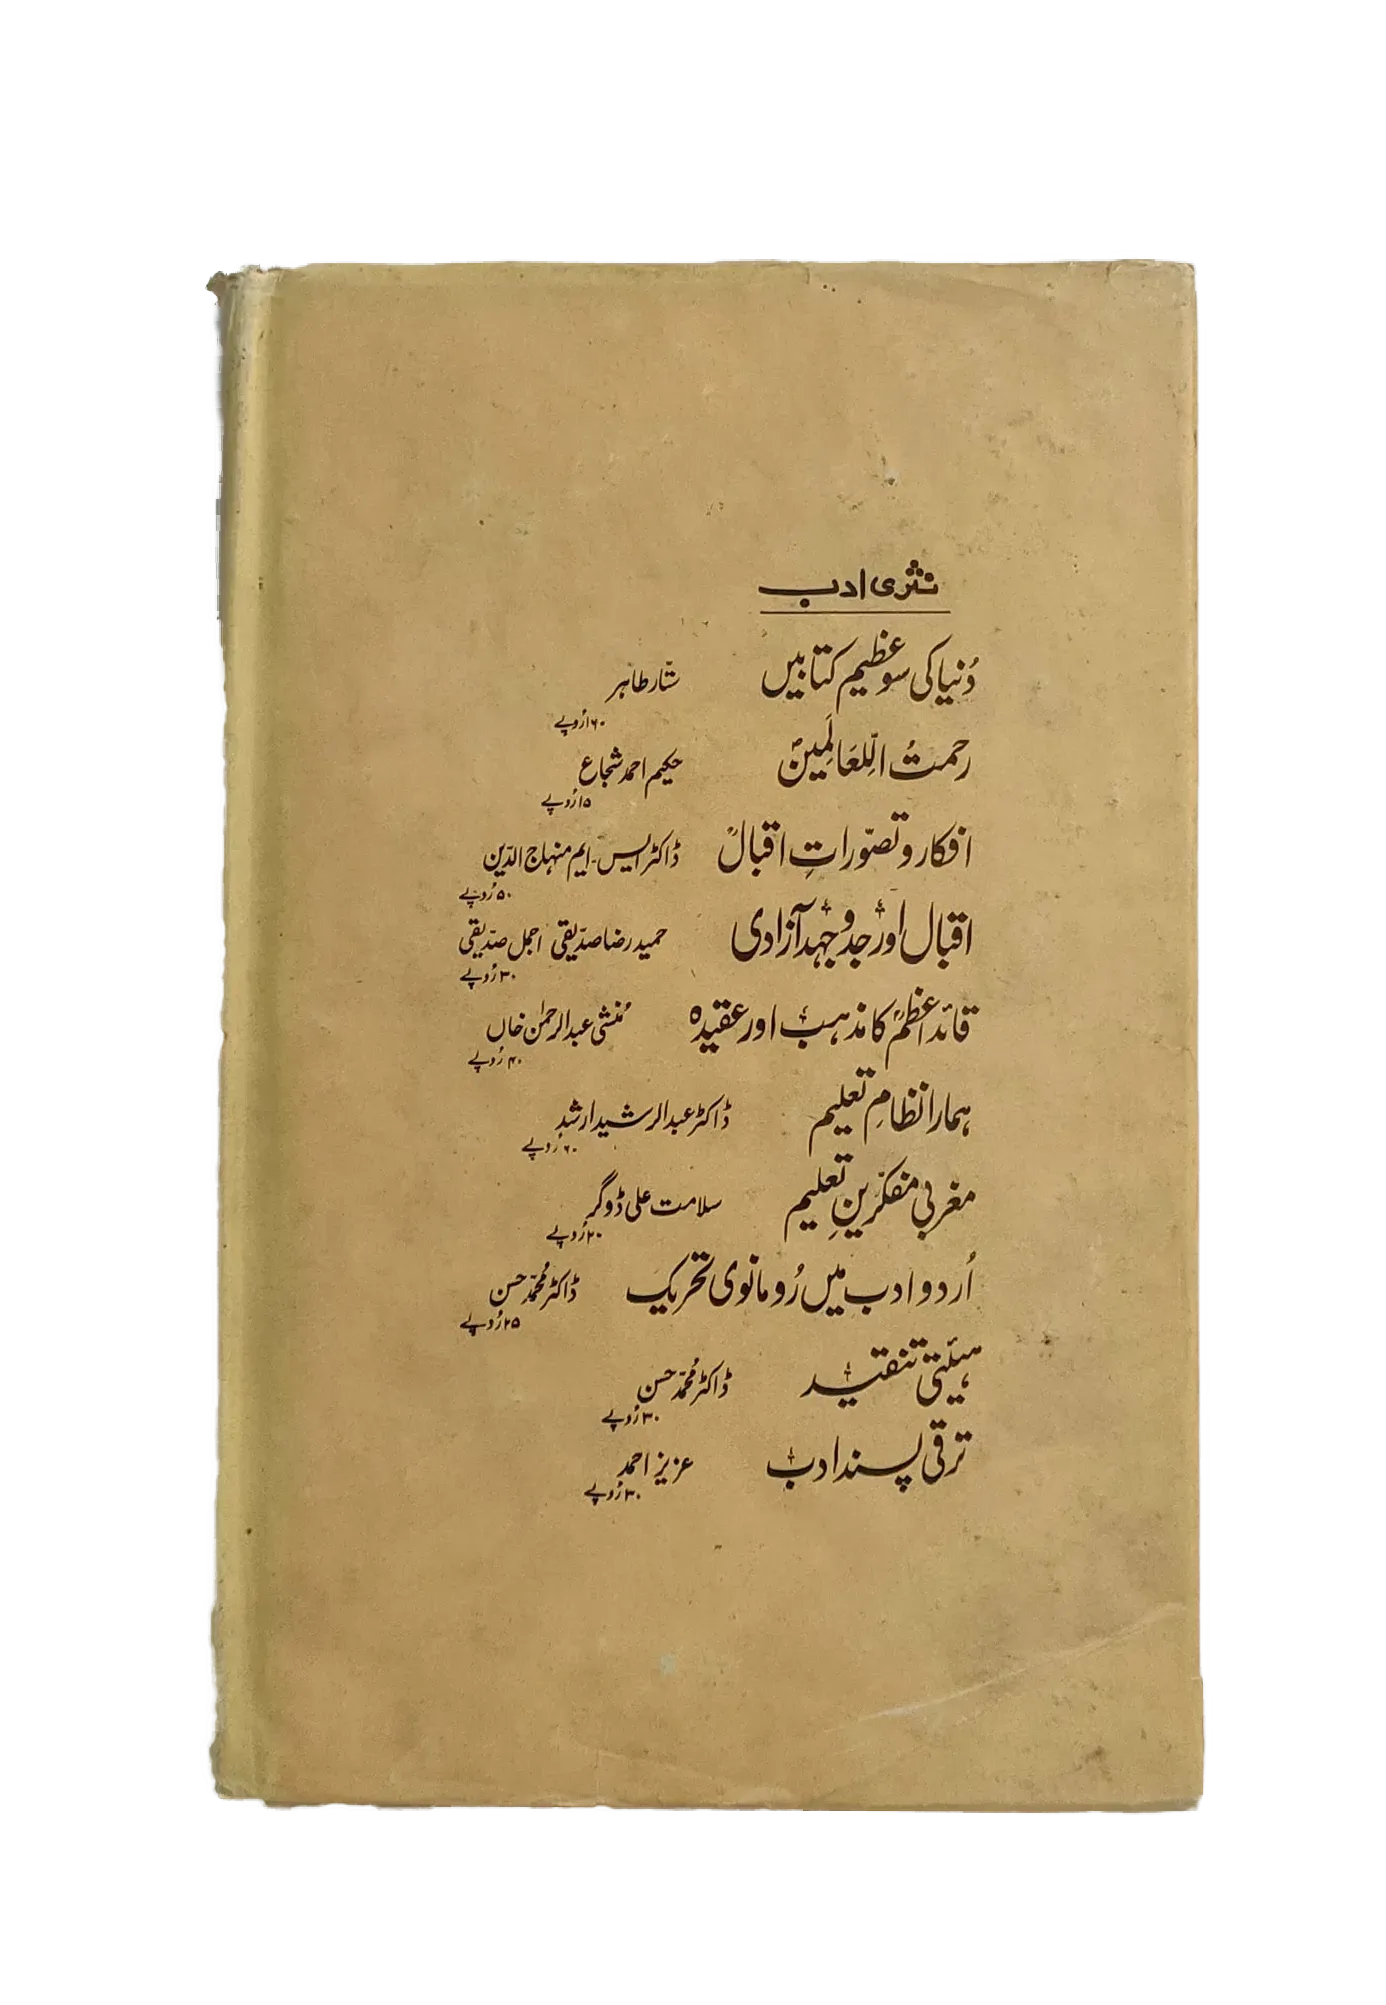 نثری ادب
دُنیا کی سو عظیم کتابیں ستّار طاہر
۱۶۰ رُوپے
رحمتُ اللِّعَالَمِینؐ حکیم احمد شجاع
۱۵ رُوپے
افکار و تصوّراتِ اقبالؒ ڈاکٹر ایس۔ ایم منہاج الدّین
۵۰ رُوپے
اقبال اور جدوجہد آزادی حمید رضا صدّیقی اجمل صدّیقی
۳۰ رُوپے
قائد اعظمؒ کا مذہب اور عقیدہ مُنشی عبدالرحمٰن خاں
۴۰ رُوپے
ہمارا نظامِ تعلیم ڈاکٹر عبدالرشید ارشد
۶۰ رُوپے
مغربی مفکّرینِ تعلیم سلامت علی ڈوگر
۲۰ رُوپے
اُردو ادب میں رُومانوی تحریک ڈاکٹر محُمّد حسن
۲۵ رُوپے
ہیئتی تنقید ڈاکٹر محُمّد حسن
۳۰ رُوپے
ترقی پسند ادب عزیز احمد
۳۰ رُوپے